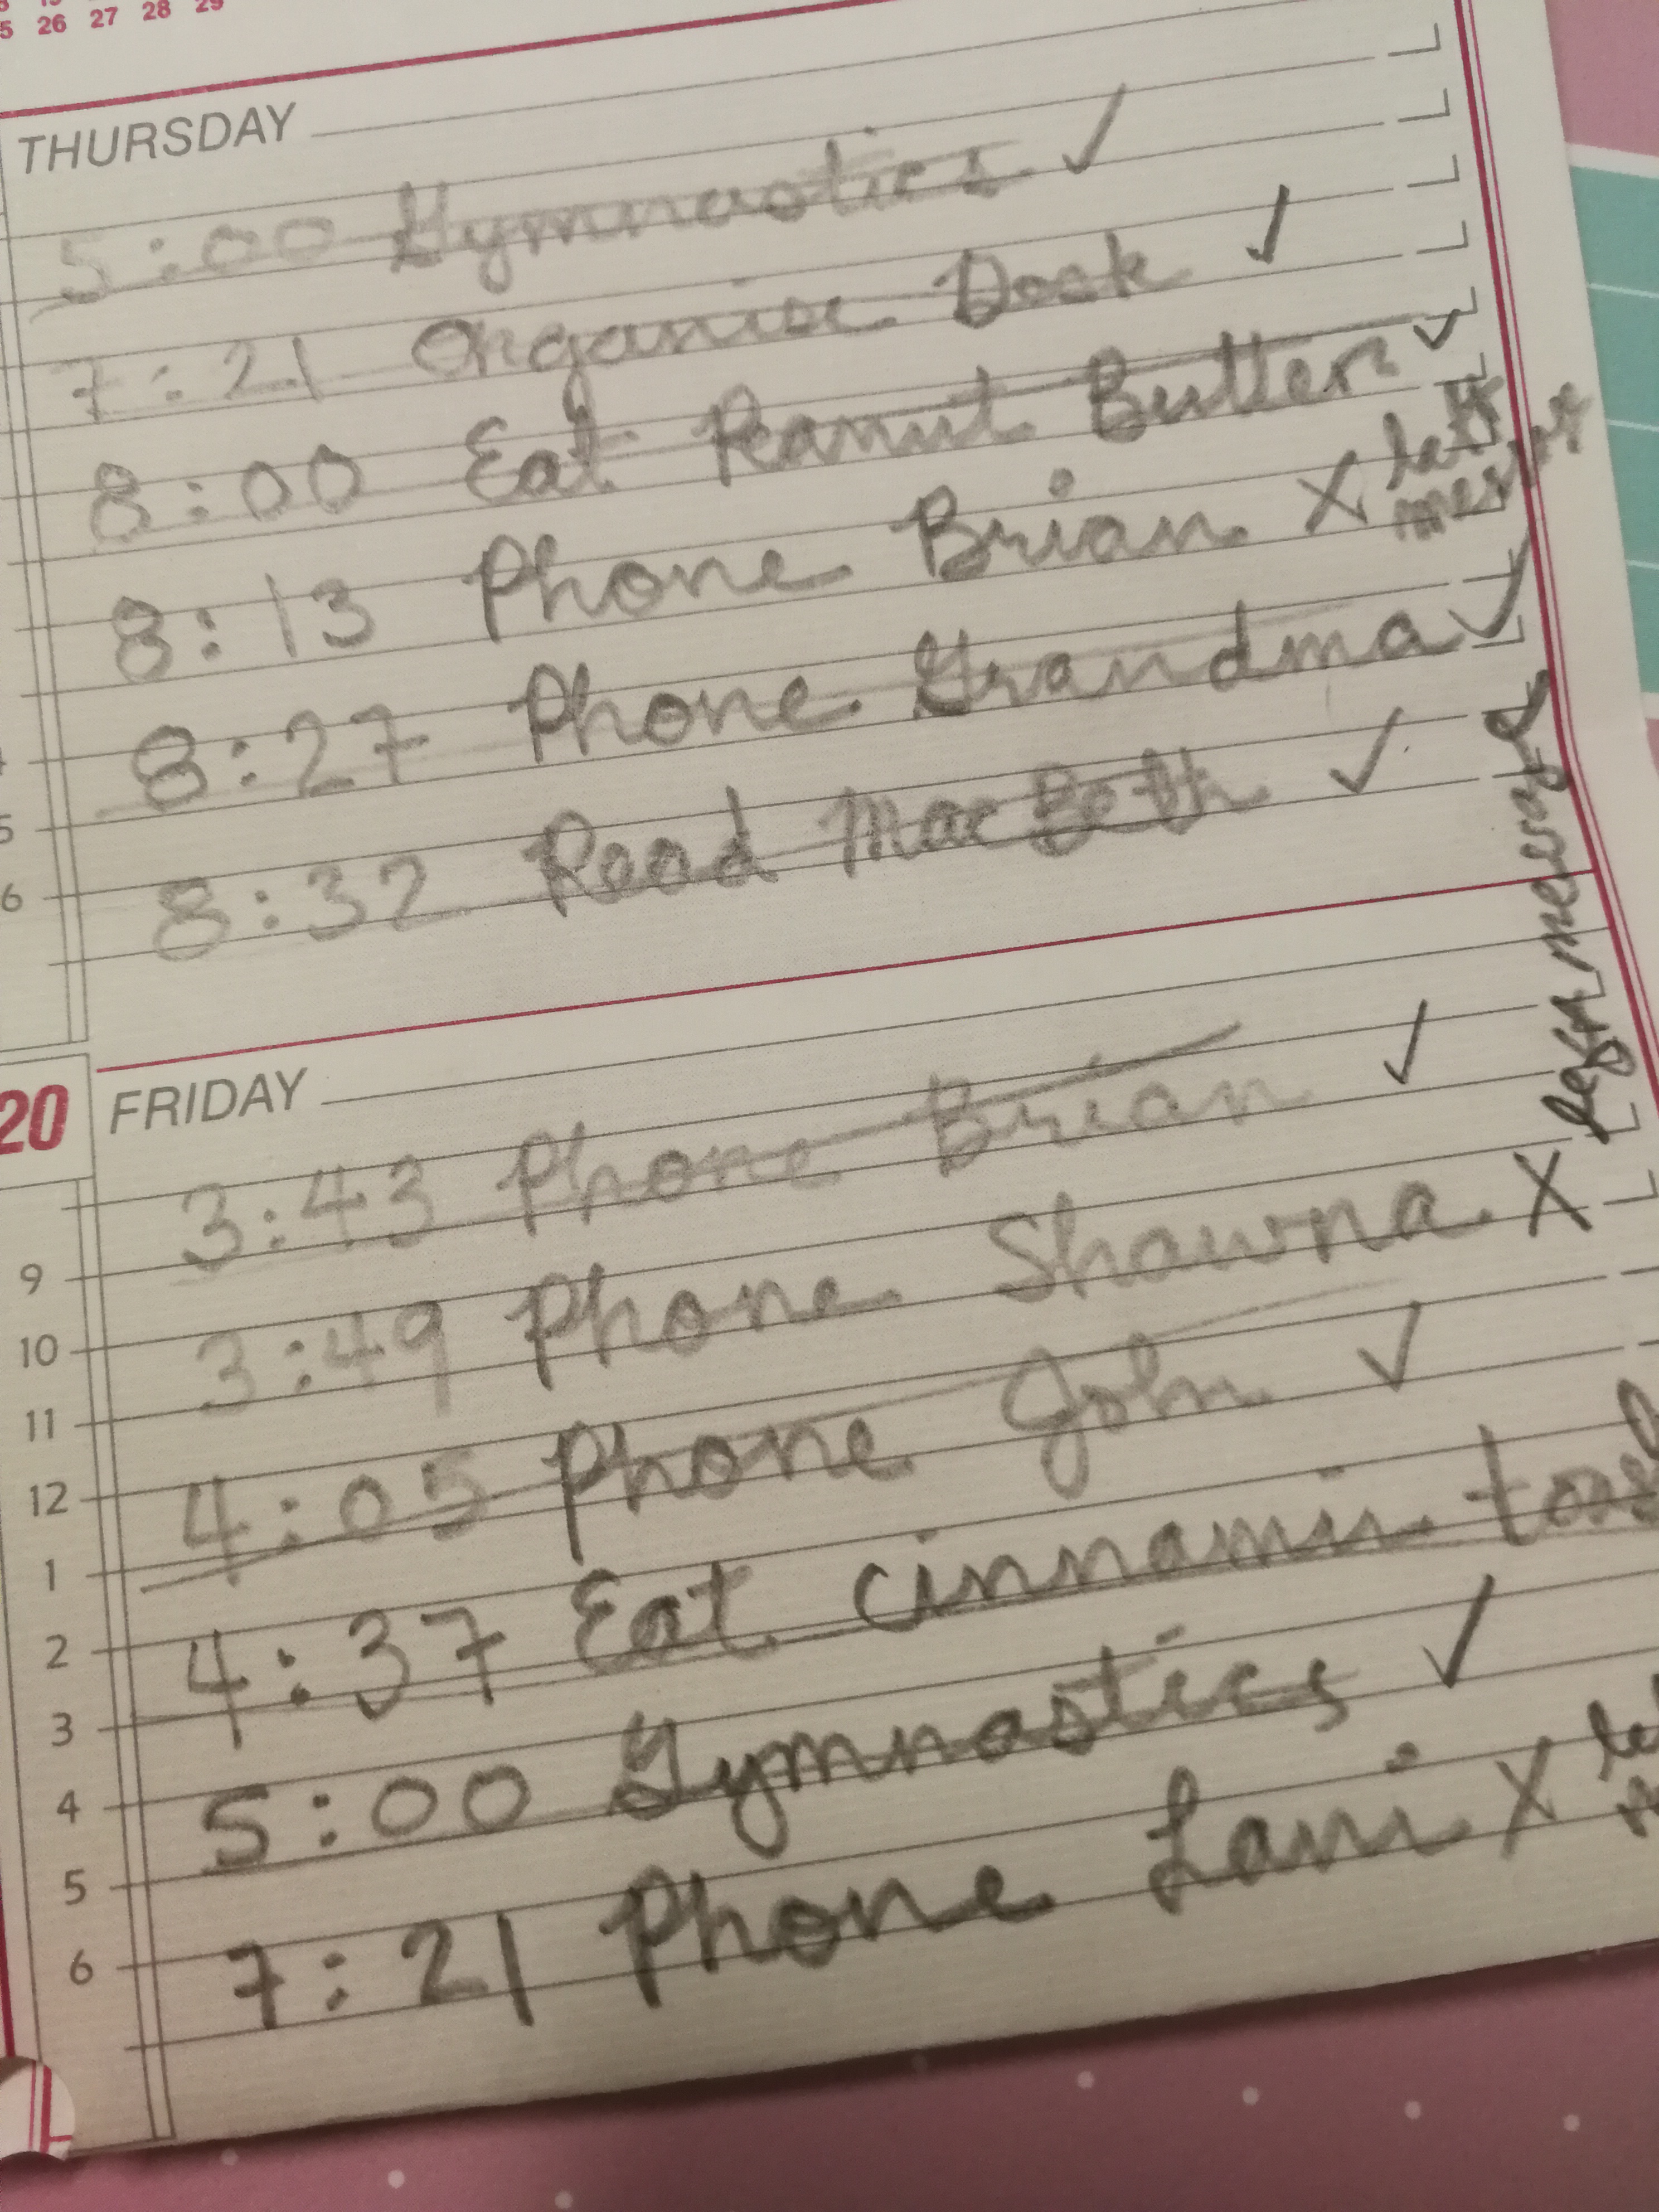 26 27 28 29
THURSDAY
5:00 Gymnastics ✓
7:21 Organise Desk ✓
8:00 Eat Peanut Butter ✓
8:13 Phone Brian X left
8:27 Phone Grandma ✓
8:32 Read MacBeth ✓
5
6
20 FRIDAY
3:43 Phone Brian ✓
3:49 Phone Shawna X left message
4:05 Phone John ✓
4:37 Eat cinnamin
5:00 Gymnastics ✓
7:21 Phone Lani X
9
10
11
12
1
2
3
4
5
6